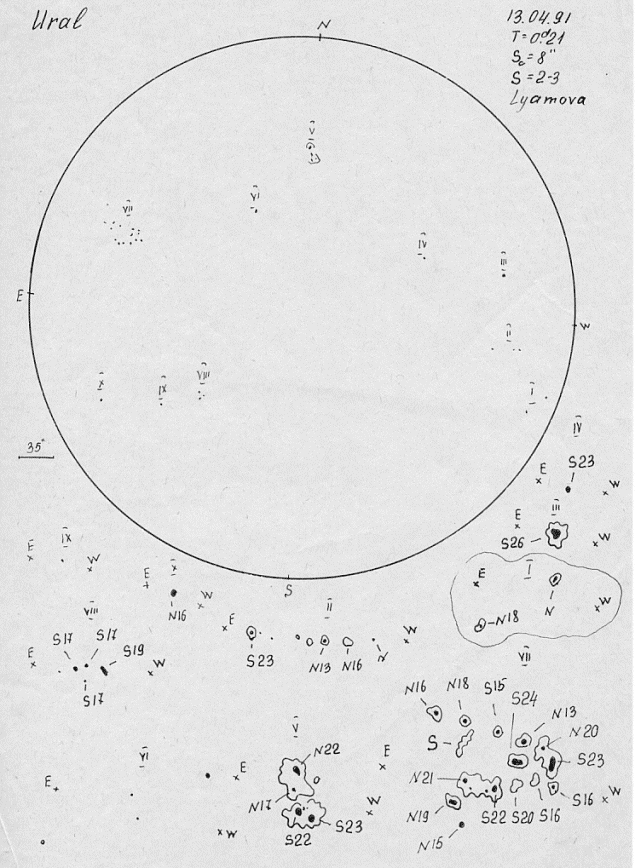 Ural
13.04.91
T=0.ᵈ21
Sc=8"
S=2-3
Lyamova
N
V
VI
VII
IV
III
E
W
II
X
IX
VIII
I
35"
S
IV
E
S23
W
III
E
S26
W
IX
E
W
X
E
N16
W
I
E
N
N18
W
VIII
E
S17
S17
S19
W
S17
II
E
S23
N13
N16
N
W
VII
N16
N18
S15
S24
N13
N20
E
S
S23
N21
N19
N15
S22
S20
S16
S16
W
VI
E
W
V
E
N22
N17
S22
S23
W